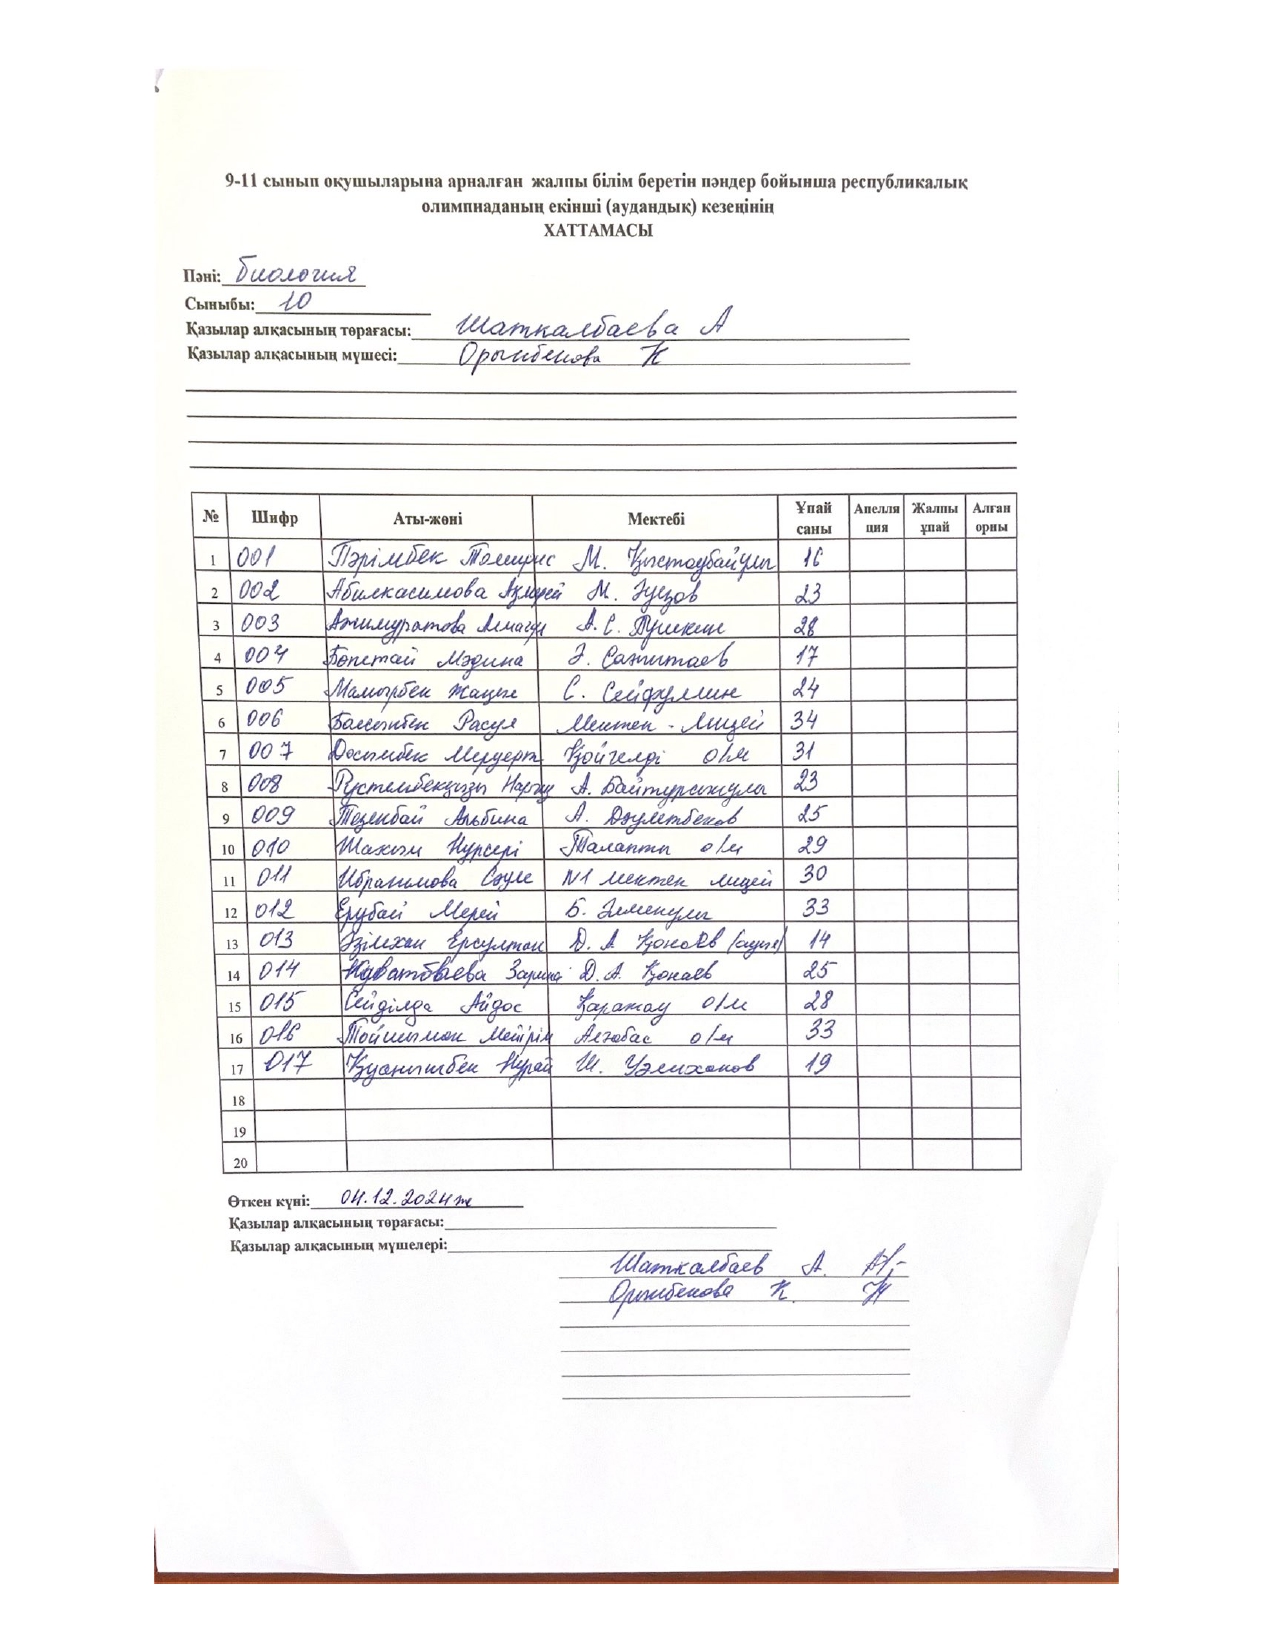 9-11 сынып оқушыларына арналған жалпы білім беретін пәндер бойынша республикалық
олимпиаданың екінші (аудандық) кезеңінің
ХАТТАМАСЫ
Пәні: биология
Сыныбы: 10
Қазылар алқасының төрағасы: Шаткалбаева А
Қазылар алқасының мүшесі: Орынбекова К
№ Шифр Аты-жөні Мектебі Ұпай саны Апелляция Жалпы ұпай Алған орны
1 001 Пәрімбек Томирис М. Қыстаубайұлы 16
2 002 Абилкасимова М. Әуезов 23
3 003 Ажимуратова А.С. Пушкин 28
4 004 Бөпетай Мәдина Ә. Сағитаев 17
5 005 Мамырбек С. Сейфуллин 24
6 006 Расул Мектеп-Лицей 34
7 007 Досымбек Меруерт Қойгелді о/м 31
8 008 Рүстембекқызы А. Байтұрсынұлы 23
9 009 Тезекбай Альбина А. Дәулетбеков 25
10 010 Нұрсері Талапты о/м 29
11 011 Ибрагимова Сәуле N1 мектеп лицей 30
12 012 Ерубай Мерей Б. 33
13 013 Әзілхан Ерсұлтан Д. А Қонаев 14
14 014 Зарина Д.А. Қонаев 25
15 015 Сейділда Айдос Қаратау о/м 28
16 016 Тойшыман Мейірім Ақтөбас о/м 33
17 017 Қуанышбек Нұрай Ш. Уәлиханов 19
18
19
20
Өткен күні: 04.12.2024ж
Қазылар алқасының төрағасы:
Қазылар алқасының мүшелері:
Шаткалбаев А.
Орынбекова К.